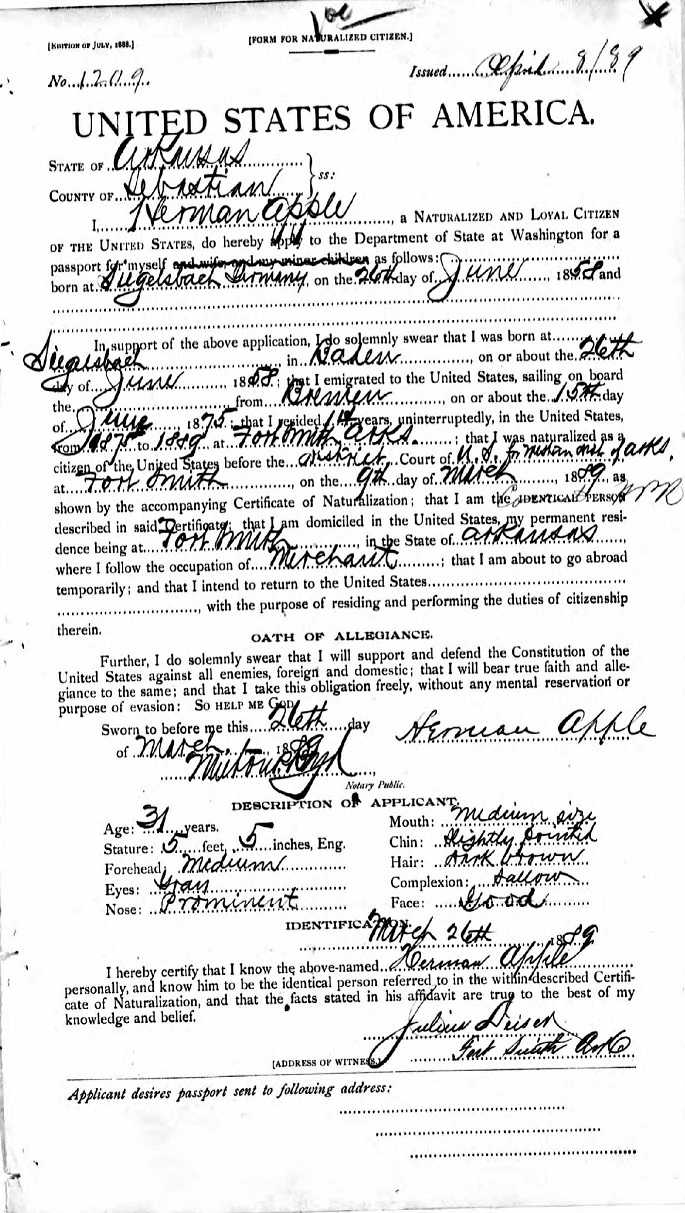 [EDITION OF JULY, 1888.]
[FORM FOR NATURALIZED CITIZEN.]
No. 1209. Issued April 8/89
UNITED STATES OF AMERICA.
STATE OF Arkansas
COUNTY OF Sebastian } ss:
I, Herman Apple, a NATURALIZED AND LOYAL CITIZEN
OF THE UNITED STATES, do hereby apply to the Department of State at Washington for a
passport for myself and wife and my minor children as follows:
born at Siegelsbach Germany, on the 26th day of June, 1858 and
In support of the above application, I do solemnly swear that I was born at
Siegelsbach in Baden, on or about the 26th
day of June 1858; that I emigrated to the United States, sailing on board
the from Bremen, on or about the 15th day
of June, 1875; that I resided 14 years, uninterruptedly, in the United States,
from 1875 to 1889 at Fort Smith Arks.; that I was naturalized as a
citizen of the United States before the District Court of U.S. for Western Dist. of Arks.
at Fort Smith, on the 9th day of March, 1889, as
shown by the accompanying Certificate of Naturalization; that I am the IDENTICAL PERSON
described in said Certificate; that I am domiciled in the United States, my permanent resi-
dence being at Fort Smith, in the State of Arkansas,
where I follow the occupation of Merchant; that I am about to go abroad
temporarily; and that I intend to return to the United States
, with the purpose of residing and performing the duties of citizenship
therein.
OATH OF ALLEGIANCE.
Further, I do solemnly swear that I will support and defend the Constitution of the
United States against all enemies, foreign and domestic; that I will bear true faith and alle-
giance to the same; and that I take this obligation freely, without any mental reservation or
purpose of evasion: SO HELP ME GOD.
Sworn to before me this 26th day
Herman Apple
of March, 1889
Notary Public.
DESCRIPTION OF APPLICANT.
Age: 31 years.
Stature: 5 feet, 5 inches, Eng.
Forehead: Medium
Eyes: Gray
Nose: Prominent
Mouth: Medium size
Chin: Slightly pointed
Hair: Dark brown
Complexion: Sallow
Face: Good
IDENTIFICATION.
March 26th 1889
I hereby certify that I know the above-named Herman Apple
personally, and know him to be the identical person referred to in the within-described Certifi-
cate of Naturalization, and that the facts stated in his affidavit are true to the best of my
knowledge and belief.
Julius
Fort Smith Ark
[ADDRESS OF WITNESS.]
Applicant desires passport sent to following address: